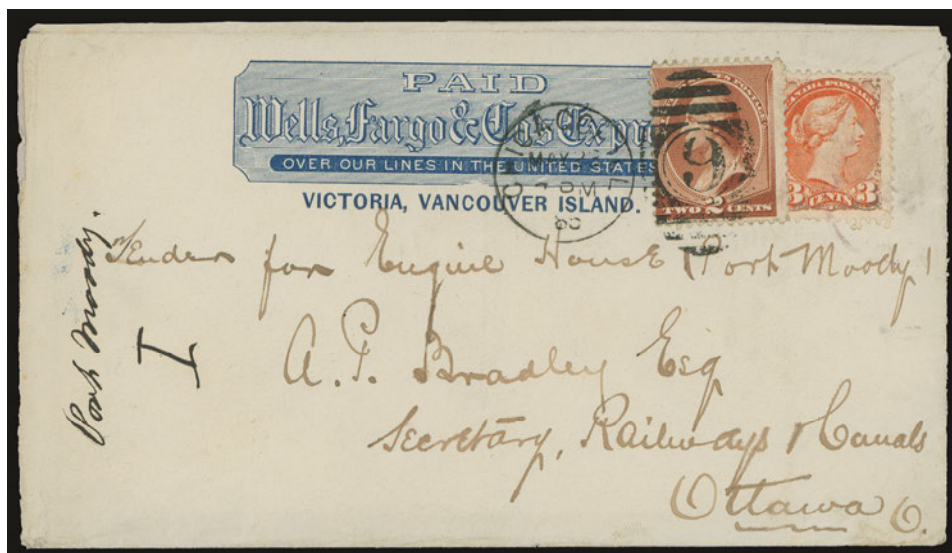 PAID
Wells, Fargo & Co's Expr
OVER OUR LINES IN THE UNITED STATES
VICTORIA, VANCOUVER ISLAND.
CHICAGO, ILL
MAY
PM
9
TWO 2 CENTS
CANADA POSTAGE
3 CENTS 3
Tender for Engine House (Port Moody)
A. P. Bradley Esq
Secretary, Railways & Canals
Ottawa O.
Port Moody.
I